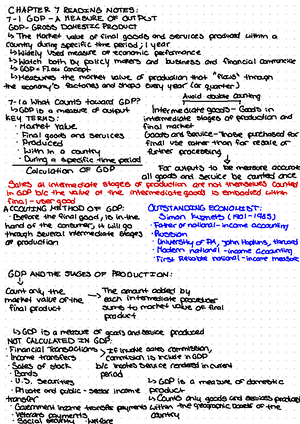 CHAPTER 7 READING NOTES:
7-1 GDP - A MEASURE OF OUTPUT
GDP- GROSS DOMESTIC PRODUCT
↳ The market value of final goods and services produced within a
country during specific time period; 1 year
↳ Widely used measure of economic performance
↳ Watch both by policy makers and business and financial communities
↳ GDP = Flow concept
↳ Measures the market value of production that "flows" through
the economy's factories and shops every year (or quarter)
Avoid double counting
7-1a What Counts toward GDP?
↳ GDP is a measure of output
KEY TERMS:
· Market value
· Final goods and services
· Produced
· Within a country
· During a specific time period
Intermediate goods- Goods in
intermediate stages of production and
final market
Goods are service- Those purchased for
final use rather than for resale or
further processing
Calculation of GDP
For outputs to be measure accurate
all goods and service be counted once
Sales at intermediate stages of production are not themselves counted
in GDP b/c the value of the intermediate goods is embodied within
final-user good
ACCOUTING METHOD OF GDP:
· Before the final good, is in the
hand of the consumer, it will go
through several intermediate stages
of production
OUTSTANDING ECONOMIST:
Simon Kuznets (1901-1985)
· Father of national-income accounting
· Russian
· University of PA, John Hopkins, Harvard
· Modern national-income accounting
· First reliable national-income measure
GDP AND THE STAGES OF PRODUCTION:
Count only the
market value of the
final product
The amount added by
each intermediate processer
sums to market value of final
product
↳ GDP is a measure of goods and service produced
NOT CALCULATED IN GDP:
· Financial Transactions
· Income transfers
· Sales of stock
· Bonds
· U.S. Securities
· Private and public-sector income
transfer
· Government income transfer payments
· Veterans payments
· Social security · Welfare
If invole sales commission,
commission is include in GDP
b/c involes service rendered in current
period
↳ GDP is a measure of domestic
product
↳ Counts only goods and services produced
within the geographic borders of the
country